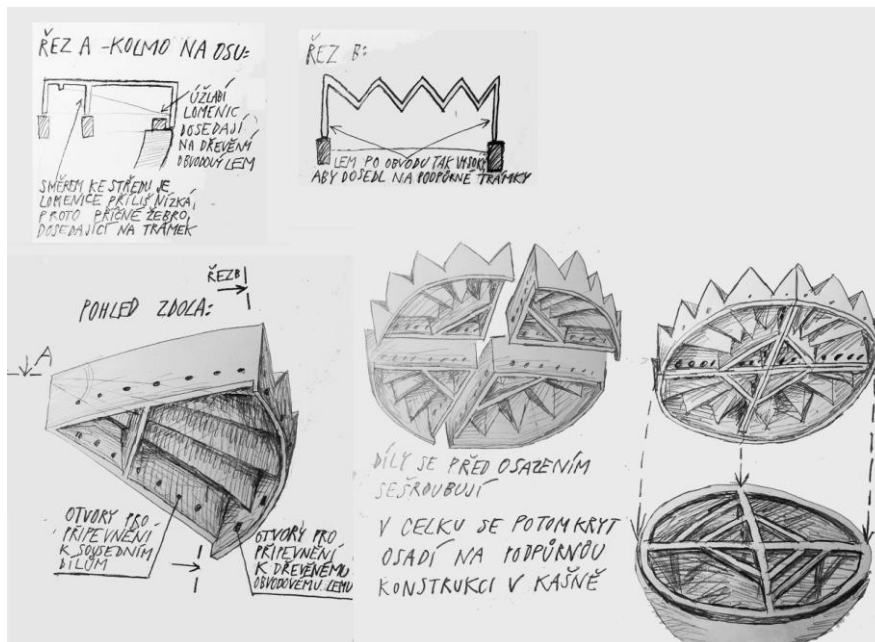 ŘEZ A - KOLMO NA OSU:
ÚŽLABÍ
LOMENIC
DOSEDAJÍ
NA DŘEVĚNÍ
OBVODOVÝ LEM
SMĚREM KE STŘEDU JE
LOMENICE PŘÍLIŠ NÍZKÁ,
PROTO PŘÍČNÉ ŽEBRO,
DOSEDAJÍCÍ NA TRÁMEK
ŘEZ B:
LEM PO OBVODU TAK VYSOKÝ
ABY DOSEDL NA PODPŮRNÉ TRÁMKY
ŘEZ B
POHLED ZDOLA:
A
OTVORY PRO
PŘIPEVNĚNÍ
K SOUSEDNÍM
DÍLŮM
OTVORY PRO
PŘIPEVNĚNÍ
K DŘEVĚNÉMU
OBVODOVÉMU LEMU
DÍLY SE PŘED OSAZENÍM
SEŠROUBUJÍ
V CELKU SE POTOM KRYT
OSADÍ NA PODPŮRNOU
KONSTRUKCI V KAŠNĚ